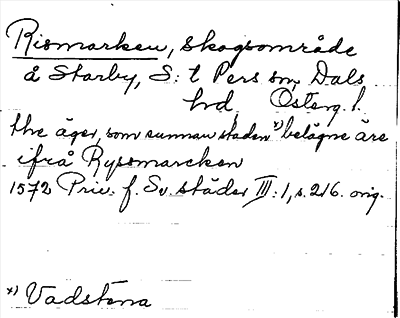 Rismarken, skogsområde
å Starby, S:t Pers sn, Dals
hd, Österg. l.
the äger, som sunnan staden x) belägne äre
ifrå Rysmarcken
1572 Priv. f. Sv. städer III:1, s. 216. orig.
x) Vadstena